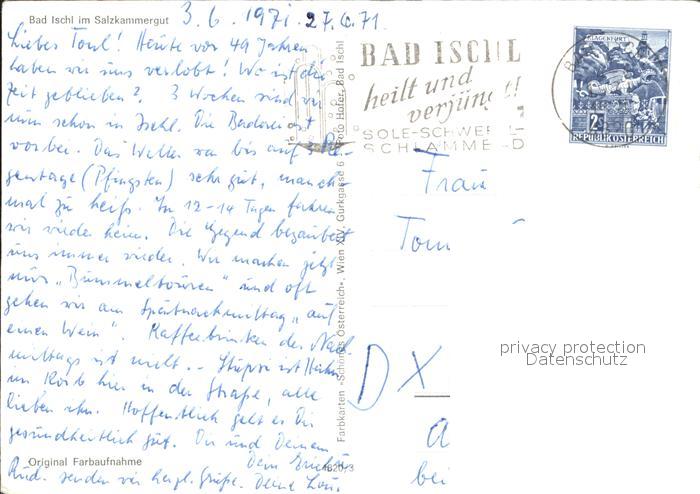 Bad Ischl im Salzkammergut
3.6.1971. 27.6.71
Liebes Toul! Heute vor 49 Jahren
haben wir uns verlobt! Wo ist die
Zeit geblieben? 3 Wochen sind wir
nun schon in Ischl. Die Badereise ist
vorbei. Das Wetter war bis auf 3 Re-
gentage (Pfingsten) sehr gut, manch-
mal zu heiß. In 12-14 Tagen fahren
wir wieder heim. Die Gegend bezaubert
uns immer wieder. Wir machen jetzt
nur „Bummeltouren" und oft
gehen wir am Spätnachmittag „auf
einen Wein". Kaffeetrinken des Nach
mittags ist nicht. – ist Hahn
im Korb hier in der Straße, alle
lieben ihn. Hoffentlich geht es Dir
gesundheitlich gut. Dir und Deinem
Dein
Rud. senden wir herzl. Grüße. Deine
Original Farbaufnahme
4820/3
Farbkarten »Schönes Österreich«, Wien XIV, Gurkgasse 6 Foto Hofer, Bad Ischl
BAD ISCHL
heilt und
verjüngt!
SOLE-SCHWEFEL-
SCHLAMMBAD
KLAGENFURT
2S
REPUBLIK ÖSTERREICH
Frau
Tom
DX
a
bei
privacy protection
Datenschutz